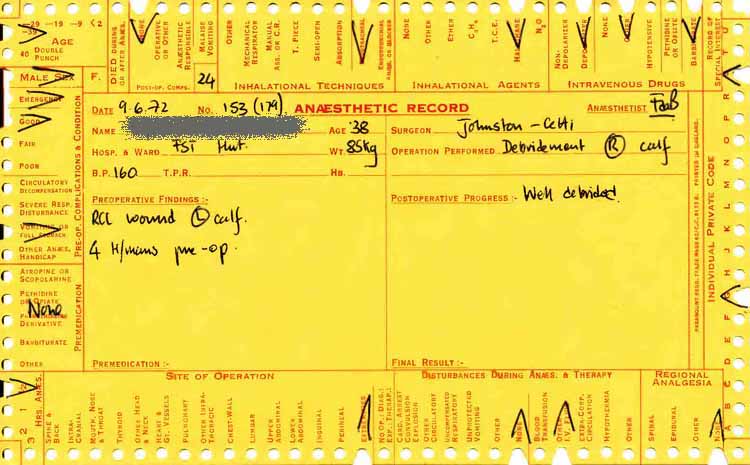 -29 -19 -9 <2
-39
AGE
40 DOUBLE PUNCH
MALE SEX F.
EMERGENCY
GOOD
FAIR
POOR
CIRCULATORY DECOMPENSATION
SEVERE RESP. DISTURBANCE
VOMITING OR FULL STOMACH
OTHER ANÆS. HANDICAP
PRE-OP. COMPLICATIONS & CONDITION
ATROPINE OR SCOPOLAMINE
PETHIDINE OR OPIATE
None
DERIVATIVE
BARBITURATE
OTHER
PREMEDICATION
DIED DURING OR AFTER ANÆS.
NONE
OPERATIVE OR OTHER
ANÆSTHETIC RESPONSIBLE
MALAISE VOMITING
OTHER
POST-OP. COMPS.
24
MECHANICAL RESPIRATOR
MANUAL ASS. OR C.R.
T. PIECE
SEMI-OPEN
ABSORPTION
INHALATIONAL TECHNIQUES
NONE
OTHER
ETHER
C₃H₆
T.C.E.
N₂O
INHALATIONAL AGENTS
NON-DEPOLARIZER
DEPOLARIZER
OTHER
HYPOTENSIVE
PETHIDINE OR OPIATE
BARBITURATE
INTRAVENOUS DRUGS
RECORD OF SPECIAL INTEREST
DATE 9.6.72 NO. 153 (179) ANÆSTHETIC RECORD ANÆSTHETIST
NAME AGE '38 SURGEON Johnston-
HOSP. & WARD FST WT. 85Kg OPERATION PERFORMED Debridement (R) calf
B.P. 160 T.P.R. HB.
PREOPERATIVE FINDINGS :- POSTOPERATIVE PROGRESS :- Well debrided.
wound (L) calf.
4 H/mans pre-op.
PREMEDICATION :- FINAL RESULT :-
PRINTED IN ENGLAND.
INDIVIDUAL PRIVATE CODE
A B C D E F G H I J K L M N O P Q R S T U
HRS. ANÆS.
3 2 1
SITE OF OPERATION
SPINE & BACK
INTRA-CRANIAL
MOUTH, NOSE & THROAT
THYROID
OTHER HEAD & NECK
HEART & GT. VESSELS
PULMONARY
OTHER INTRA-THORACIC
CHEST-WALL
LUMBAR
UPPER ABDOMINAL
LOWER ABDOMINAL
INGUINAL
PERINEAL
EXTREMITIES
NO OP.; DIAG.; EXP.; THERAP.
DISTURBANCES DURING ANÆS. & THERAPY
CARD. ARREST CONVULSION EXPLOSION
OTHER CIRCULATORY
UNCOMPENSATED RESPIRATORY
UNPROTECTED VOMITING
OTHER
NONE
BLOOD TRANSFUSION
OTHER I.V. FLUID
EXTRA-CORP. CIRCULATION
HYPOTHERMIA
OTHER
REGIONAL ANALGESIA
SPINAL
EPIDURAL
OTHER
NONE